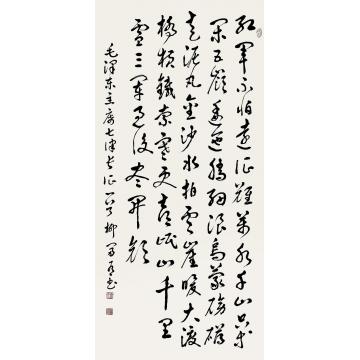 红軍不怕遠征難萬水千山只等
閑五嶺逶迤騰細浪烏蒙磅礴
走泥丸金沙水拍雲崖暖大渡
橋橫鐵索寒更喜岷山千里
雪三軍過後盡開顏
毛澤東主席七律長征一首柳書